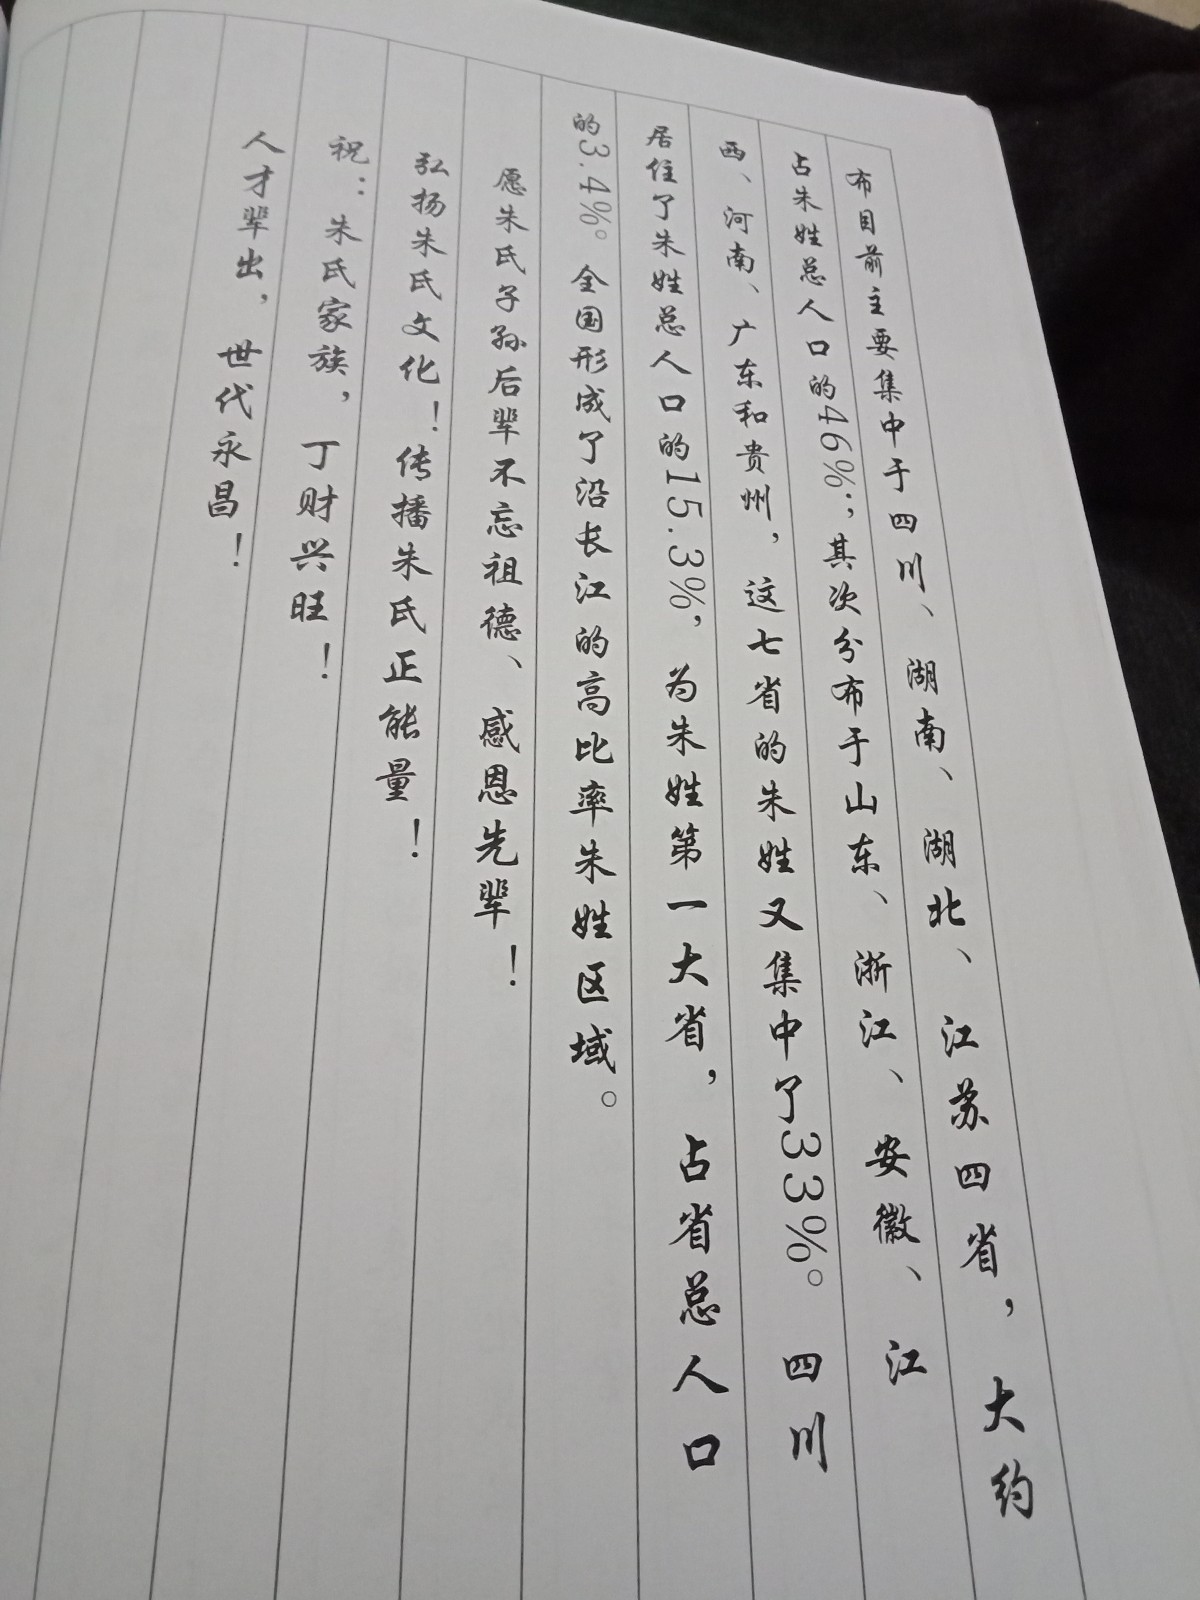 布目前主要集中于四川、湖南、湖北、江苏四省，大约
占朱姓总人口的46%；其次分布于山东、浙江、安徽、江
西、河南、广东和贵州，这七省的朱姓又集中了33%。四川
居住了朱姓总人口的15.3%，为朱姓第一大省，占省总人口
的3.4%。全国形成了沿长江的高比率朱姓区域。
愿朱氏子孙后辈不忘祖德、感恩先辈！
弘扬朱氏文化！传播朱氏正能量！
祝：朱氏家族，丁财兴旺！
人才辈出，世代永昌！